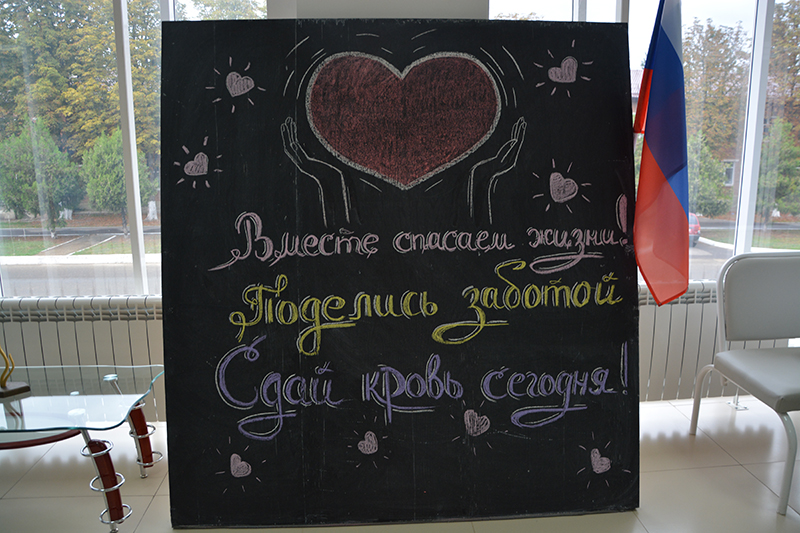 Вместе спасаем жизни!
Поделись заботой
Сдай кровь сегодня!